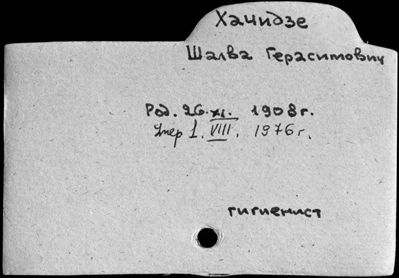 Хачидзе
Шалва Герасимович
Род. 26.XI. 1908 г.
Умер 1.VIII. 1976 г.
гигиенист